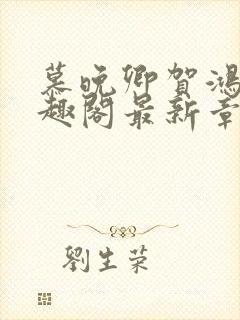 慕晚卿贺鸿
趣阁最新章
劉生荣